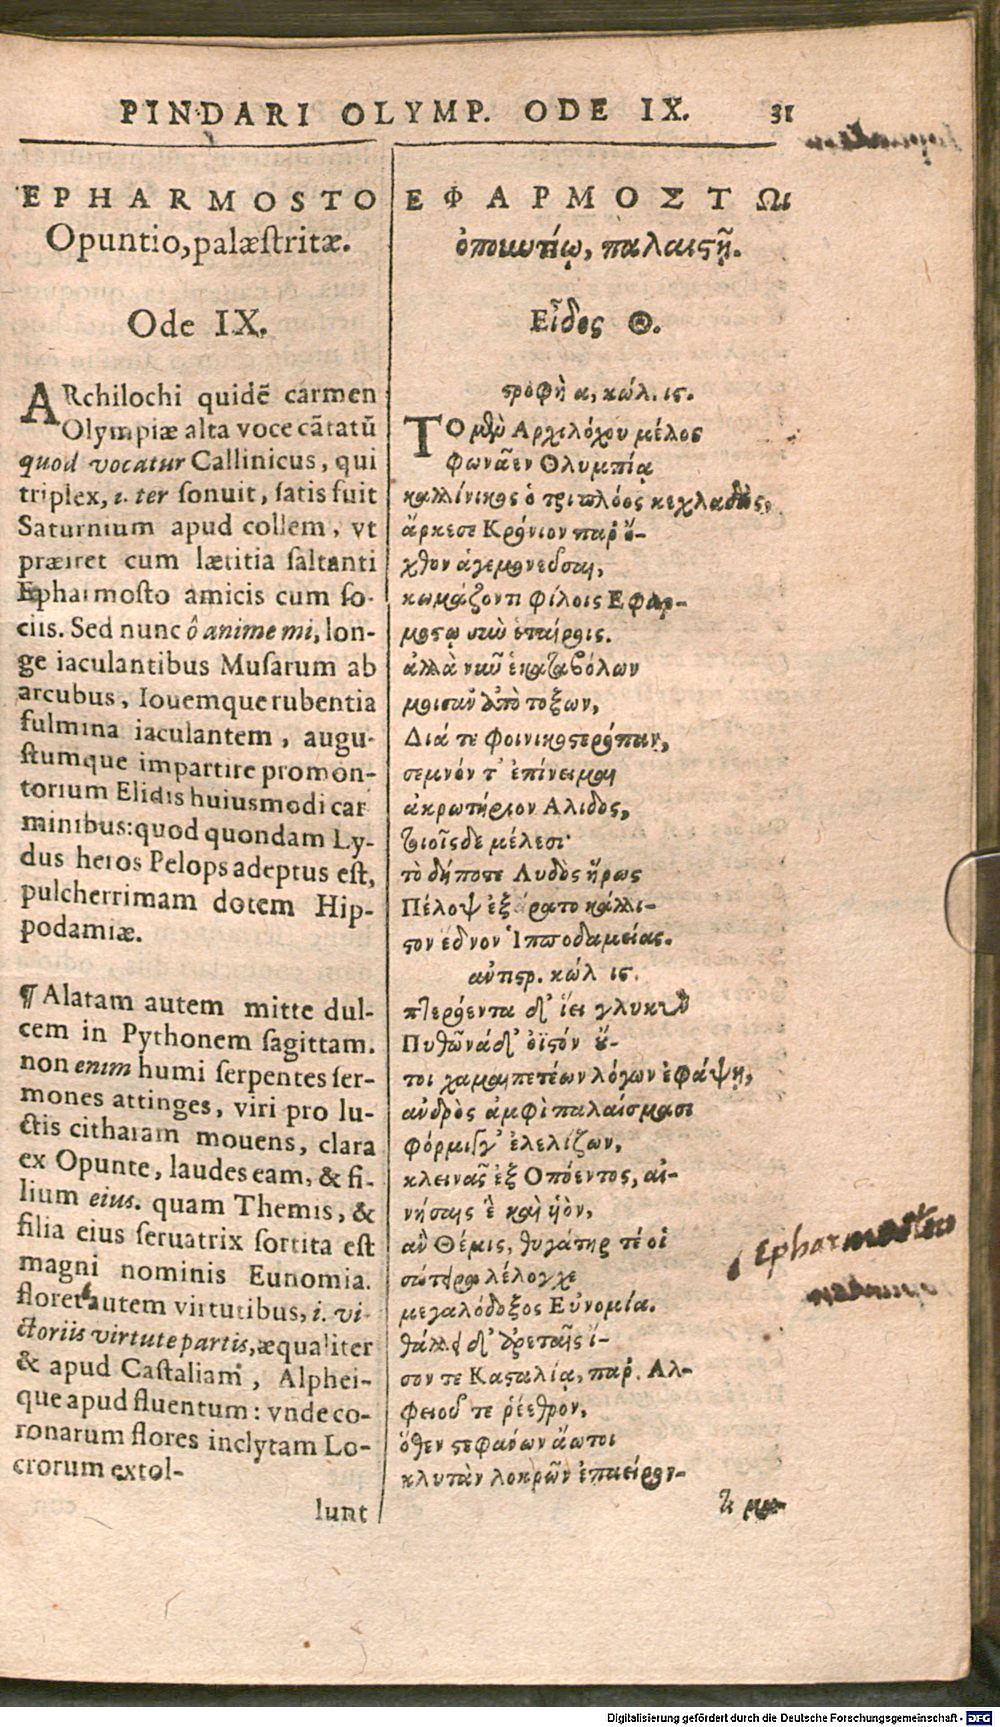 PINDARI OLYMP. ODE IX. 31
EPHARMOSTO
Opuntio, palæſtritæ.
Ode IX.
ARchilochi quidē carmen
Olympiæ alta voce cātatū
quod vocatur Callinicus, qui
triplex, i. ter ſonuit, ſatis fuit
Saturnium apud collem, vt
præiret cum lætitia ſaltanti
Epharmoſto amicis cum ſo-
ciis. Sed nunc ô anime mi, lon-
ge iaculantibus Muſarum ab
arcubus, Iouemque rubentia
fulmina iaculantem, augu-
ſtumque impartire promon-
torium Elidis huiusmodi car
minibus: quod quondam Ly-
dus heros Pelops adeptus eſt,
pulcherrimam dotem Hip-
podamiæ.
¶ Alatam autem mitte dul-
cem in Pythonem ſagittam.
non enim humi ſerpentes ſer-
mones attinges, viri pro lu-
ctis citharam mouens, clara
ex Opunte, laudes eam, & fi-
lium eius. quam Themis, &
filia eius ſeruatrix ſortita eſt
magni nominis Eunomia.
floret autem virtutibus, i. vi-
ctoriis virtute partis, æqualiter
& apud Caſtaliam, Alphei-
que apud fluentum: vnde co-
ronarum flores inclytam Lo-
crorum extol-
lunt
ΕΦΑΡΜΟΣΤΩι
ὀπουντίῳ, παλαιςῇ.
Εἶδος Θ.
ςροφὴ α, κώλ. ις.
ΤΟ μὲν Αρχιλόχου μέλος
φωνᾶεν Ολυμπίᾳ
καλλίνικος ὁ τριπλόος κεχλαδὼς,
ἄρκεσε Κρόνιον παρ' ὄ-
χθον ἁγεμονεῦσαι,
κωμάζοντι φίλοις Εφαρ-
μόςῳ σὺν ἑταίροις.
ἀλλὰ νῦν ἑκαταβόλων
μοισᾶν ἀπὸ τόξων,
Διά τε φοινικοςερόπαν,
σεμνόν τ' ἐπίνειμαι
ἀκρωτήριον Αλιδος,
τοιοῖσδε μέλεσι·
τὸ δήποτε Λυδὸς ἥρως
Πέλοψ ἐξάρατο κάλλι-
ςον ἕδνον Ἱπποδαμείας.
ἀντιςρ. κώλ ις.
πτερόεντα δ' ἵει γλυκὺν
Πυθῶνάδ' ὀϊςόν ȣ̓-
τοι χαμαιπετέων λόγων ἐφάψῃ,
ἀνδρὸς ἀμφὶ παλαίσμασι
φόρμιγγ' ἐλελίζων,
κλεινᾶς ἐξ Οπόεντος, αἰ-
νήσαις ἓ καὶ ὑὸν,
ἃν Θέμις, θυγάτηρ τέ οἱ
σώτειρα λέλογχε
μεγαλόδοξος Εὐνομία.
θάλλει δ' ἀρεταῖς ἴ-
σον τε Καςαλίᾳ, παρ' Αλ-
φειοῦ τε ῥέεθρον,
ὅθεν ςεφάνων ἄωτοι
κλυτὰν λοκρῶν ἐπαείρον-
τι μα-
Epharmostus
Digitalisierung gefördert durch die Deutsche Forschungsgemeinschaft - DFG